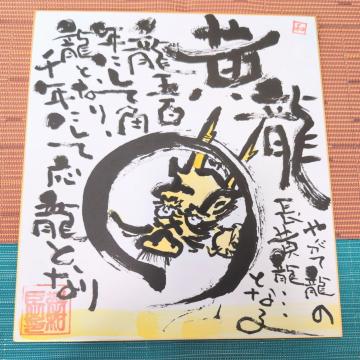 黄龍
龍五百
年にして角
龍となり
千年にして応龍となり
やがて龍の
長黄龍…
となる